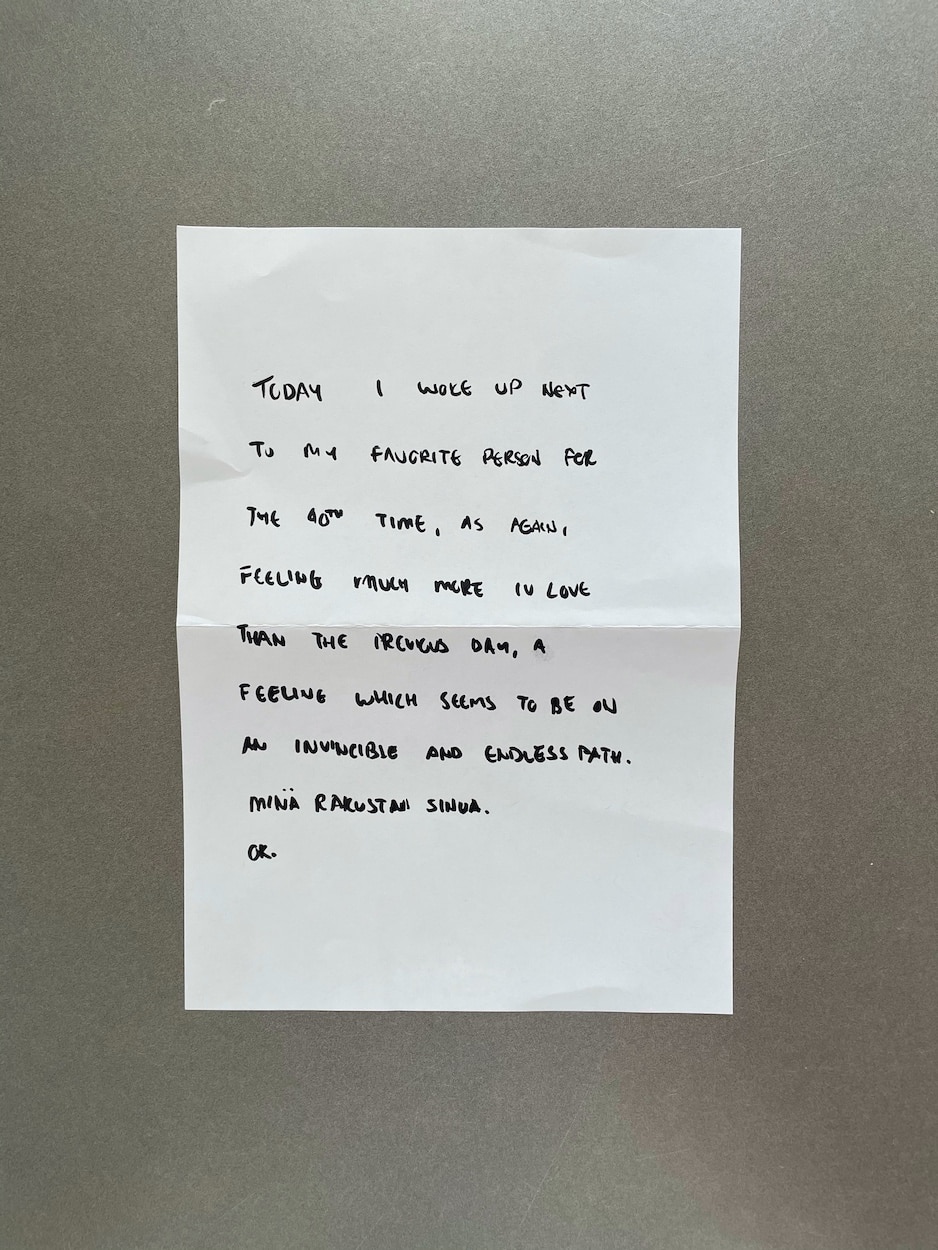 TODAY I WOKE UP NEXT
TO MY FAVORITE PERSON FOR
THE 40TH TIME, AS AGAIN,
FEELING MUCH MORE IN LOVE
THAN THE PREVIOUS DAY, A
FEELING WHICH SEEMS TO BE ON
AN INVINCIBLE AND ENDLESS PATH.
MINÄ RAKUSTAN SINUA.
OK.